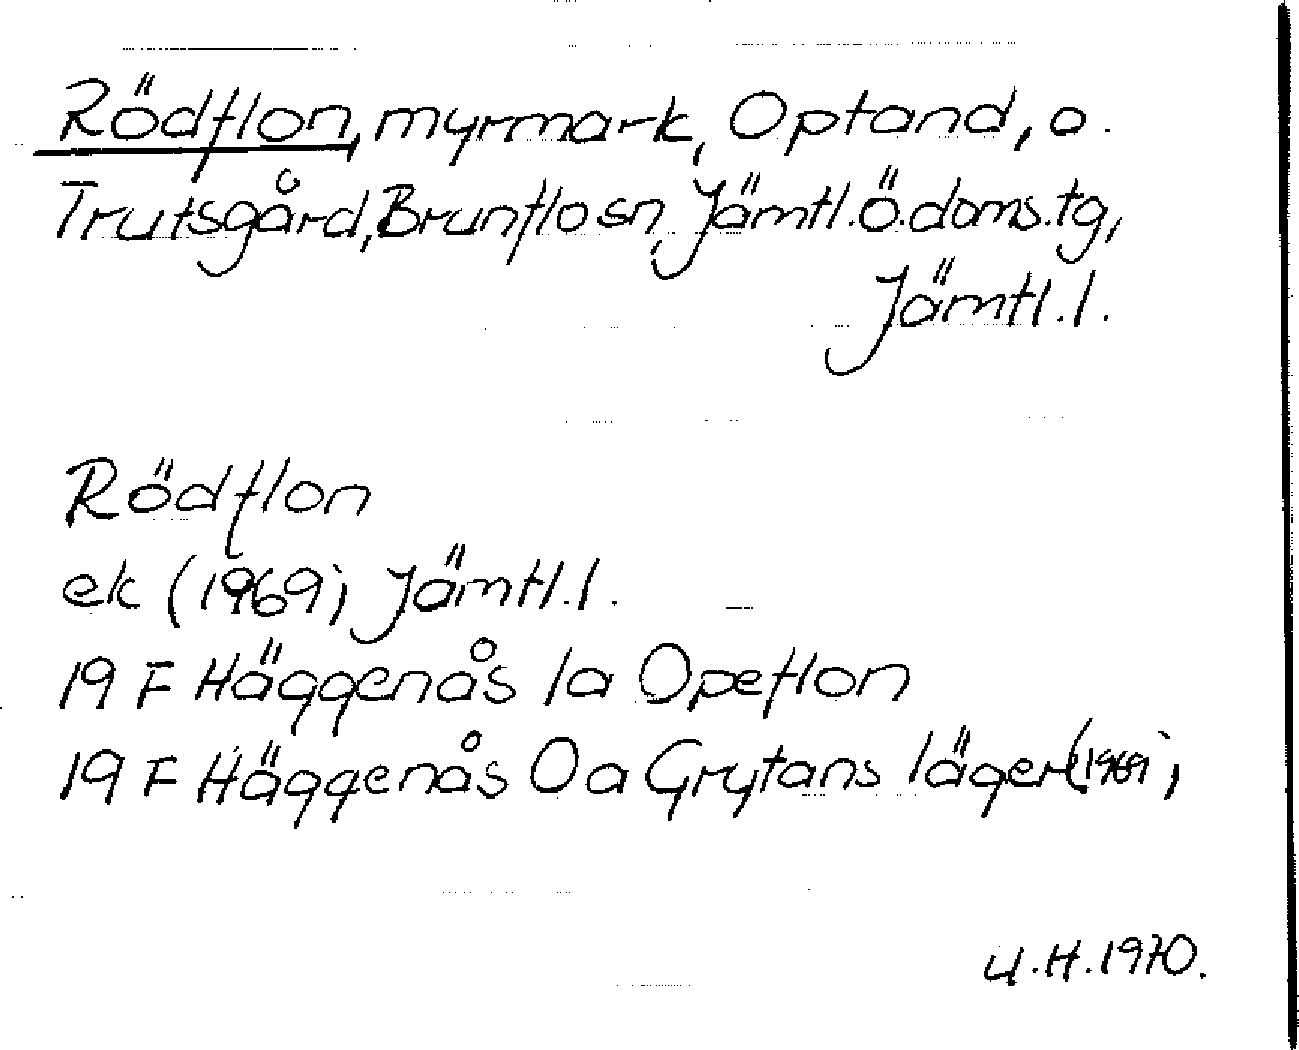 Rödflon, myrmark, Optand, o.
Trutsgård, Brunflo sn, Jämtl. Ö. doms. tg,
Jämtl. l.
Rödflon
ek (1969); Jämtl. l.
19 F Häggenås 1a Opeflon
19 F Häggenås 0a Grytans läger (1969);
U.H. 1970.